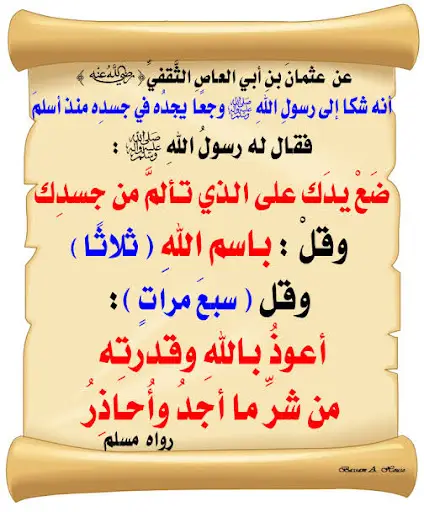 عن عثمانَ بنِ أبي العاصِ الثَّقفيِّ ﴿ رضي الله عنه ﴾
أنه شكا إلى رسولِ اللهِ ﷺ وجعًا يجدُه في جسدِه منذ أسلمَ
فقال له رسولُ اللهِ ﷺ :
ضَعْ يدَك على الذي تألمَّ من جسدِك
وقلْ : باسم اللهِ ( ثلاثًا )
وقل ( سبعَ مراتٍ ) :
أعوذُ باللهِ وقدرتِه
من شرِّ ما أجدُ وأُحاذِرُ
رواه مسلم
Bassam A.